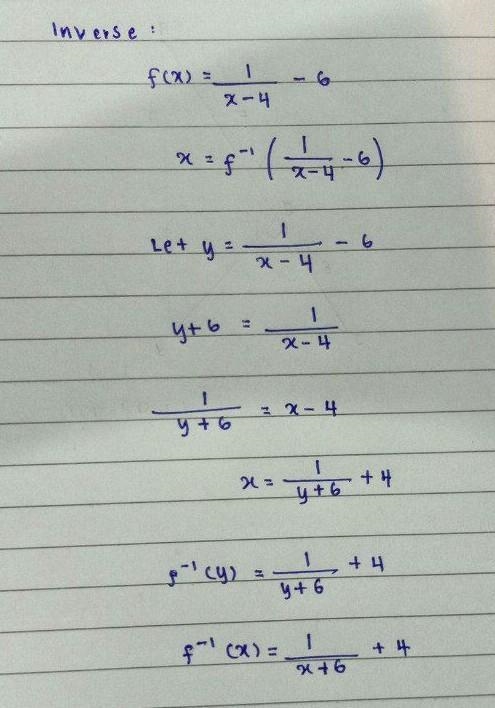 Inverse :
f(x) = 1/(x-4) - 6
x = f⁻¹ (1/(x-4) - 6)
Let y = 1/(x-4) - 6
y+6 = 1/(x-4)
1/(y+6) = x-4
x = 1/(y+6) + 4
f⁻¹(y) = 1/(y+6) + 4
f⁻¹(x) = 1/(x+6) + 4